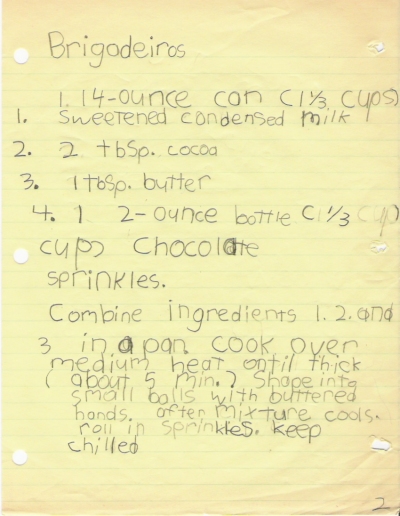 Brigadeiros
1. 14-ounce can (1 1/3 cups)
1. Sweetened condensed milk
2. 2 tbsp. cocoa
3. 1 tbsp. butter
4. 1 2-ounce bottle (1 1/3 cup
cups chocolate
sprinkles.
Combine ingredients 1. 2. and
3 in a pan. cook over
medium heat ontil thick
(about 5 min.) Shape into
small balls with buttered
hands. after mixture cools.
roll in sprinkles. keep
chilled
2